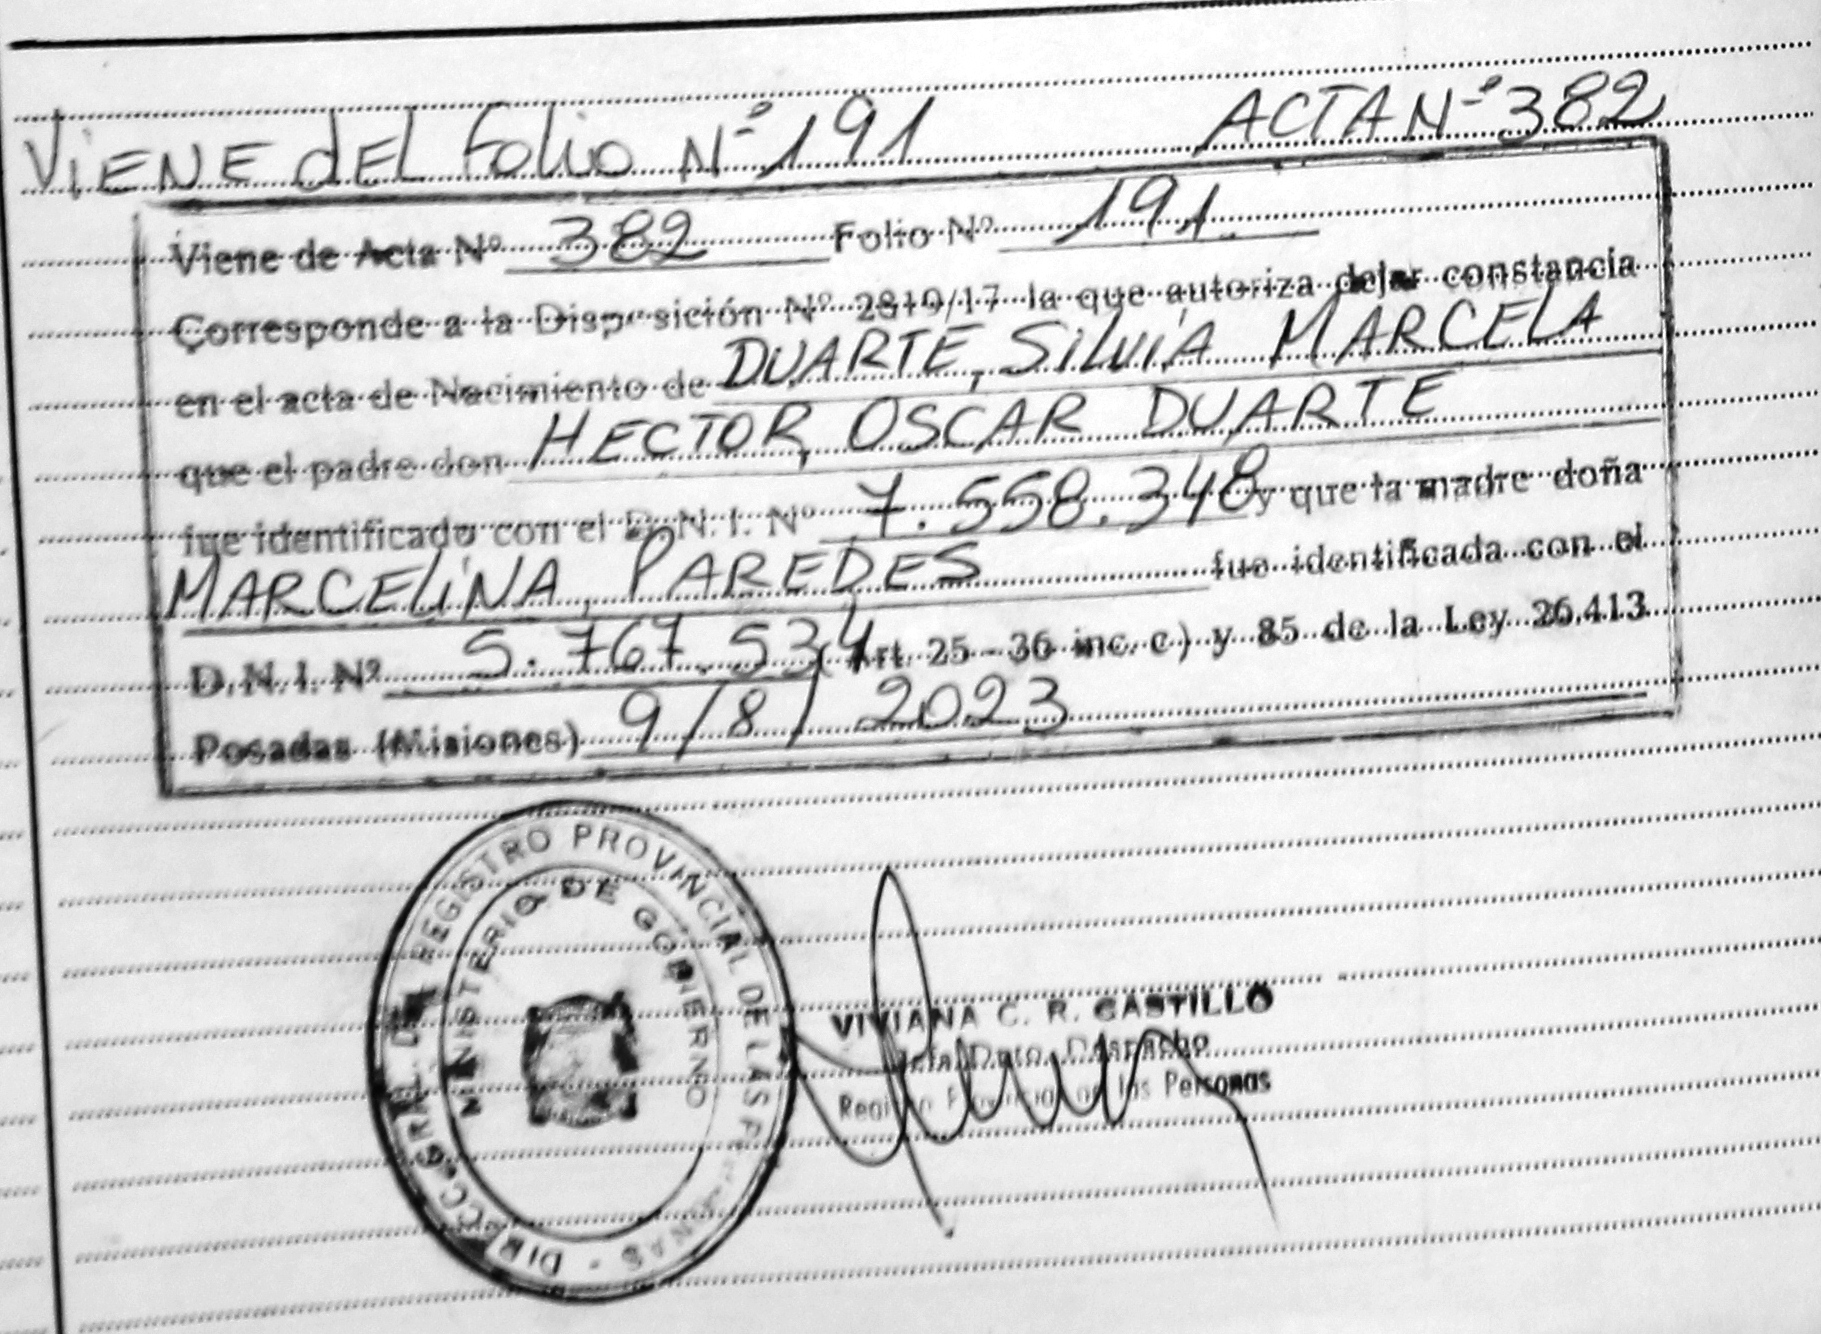 ViENE dEL folio Nº 191 ACTA Nº 382
Viene de Acta Nº 382 Folio Nº 191
Corresponde a la Disposición Nº 2819/17 la que autoriza dejar constancia
en el acta de Nacimiento de DUARTE, SiLViA MARCELA
que el padre don HECTOR OSCAR DUARTE
fue identificado con el D.N.I. Nº 7.558.348 y que la madre doña
MARCELiNA PAREDES fue identificada con el
D.N.I. Nº 5.767.534 (Art. 25 - 36 inc. c) y 85 de la Ley 26.413
Posadas (Misiones) 9/8/2023
DIRECC. GRAL. DEL REGISTRO PROVINCIAL DE LAS PERSONAS
MINISTERIO DE GOBIERNO
VIVIANA C. R. CASTILLO
Jefa Dpto. Despacho
Registro Provincial de las Personas